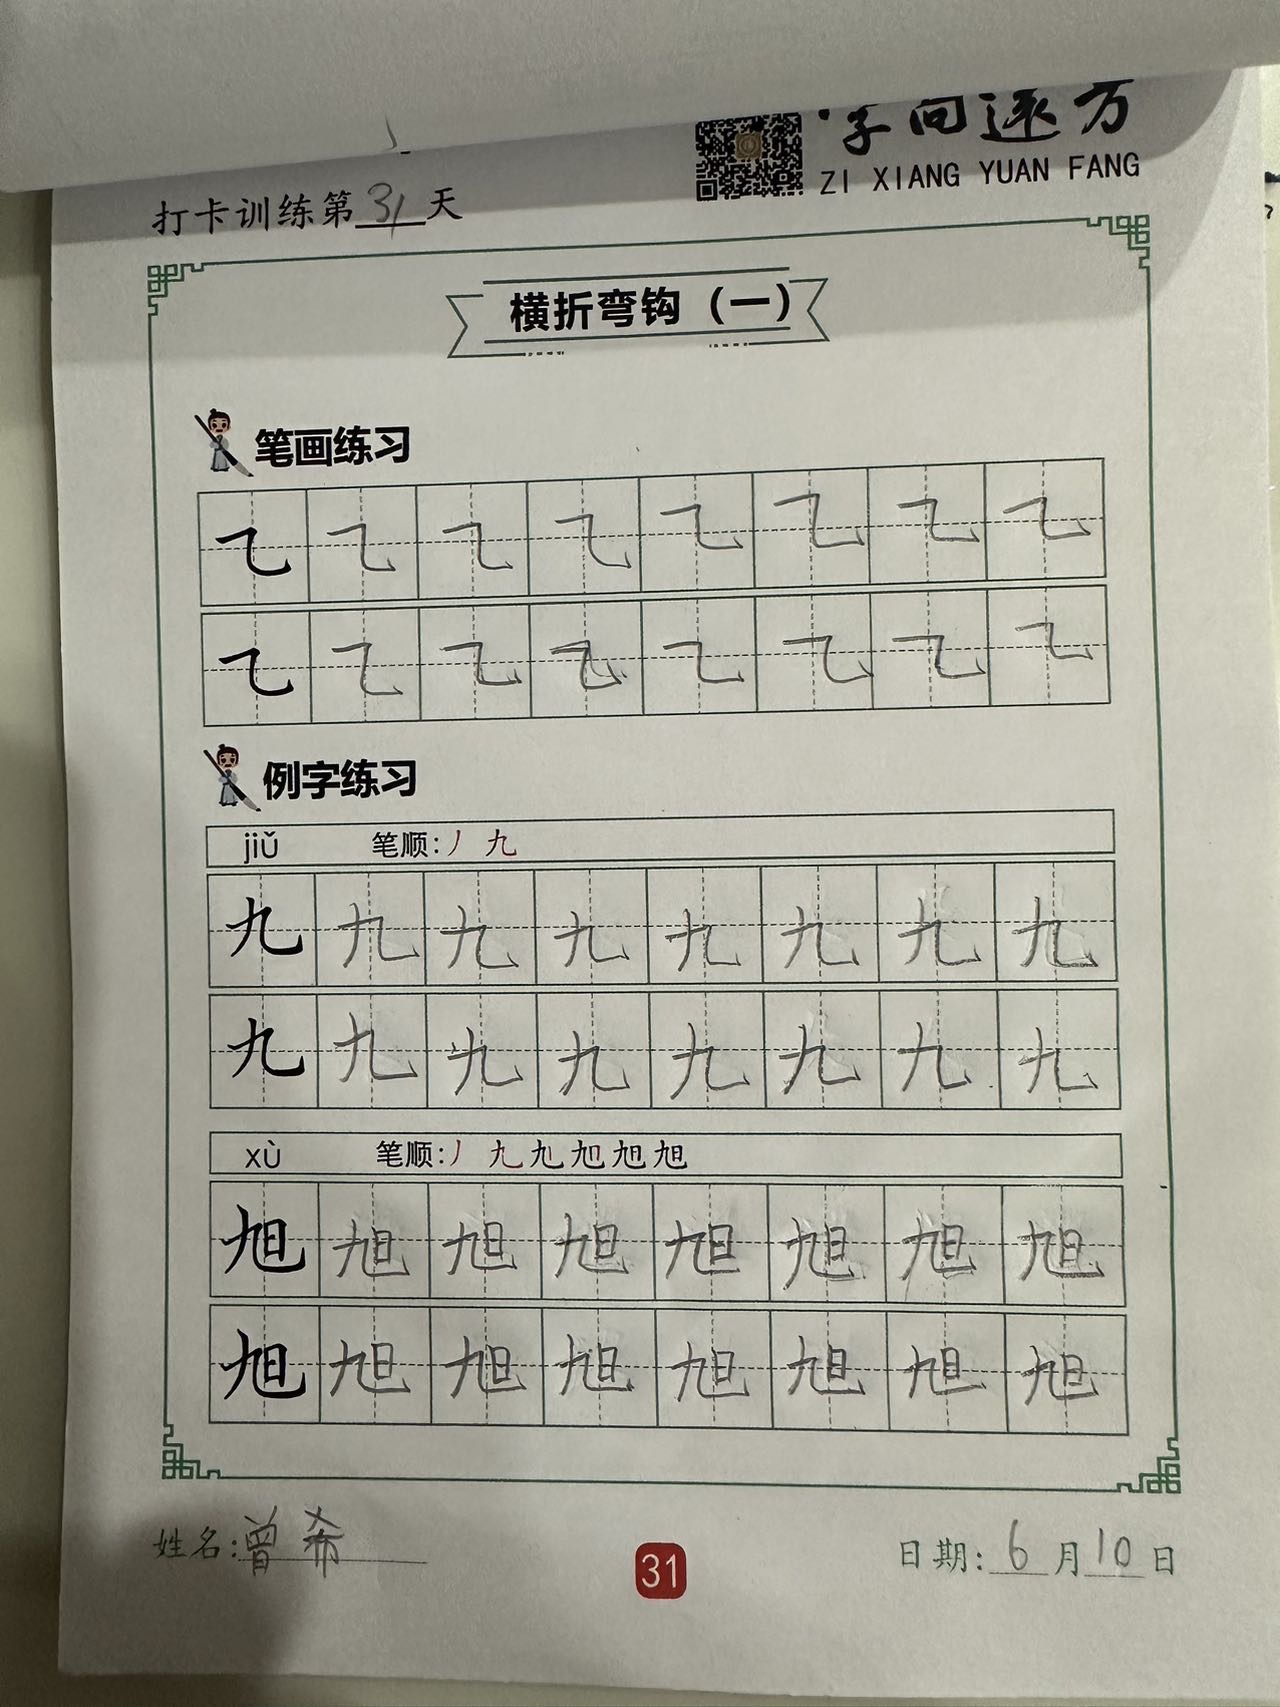 字向远方
ZI XIANG YUAN FANG
打卡训练第31天
横折弯钩（一）
笔画练习
乙 乙 乙 乙 乙 乙 乙 乙
乙 乙 乙 乙 乙 乙 乙 乙
例字练习
jiǔ 笔顺:丿 九
九 九 九 九 九 九 九 九
九 九 九 九 九 九 九 九
xù 笔顺:丿 九 九 旭 旭 旭
旭 旭 旭 旭 旭 旭 旭 旭
旭 旭 旭 旭 旭 旭 旭 旭
姓名:曾希
31
日期:6月10日